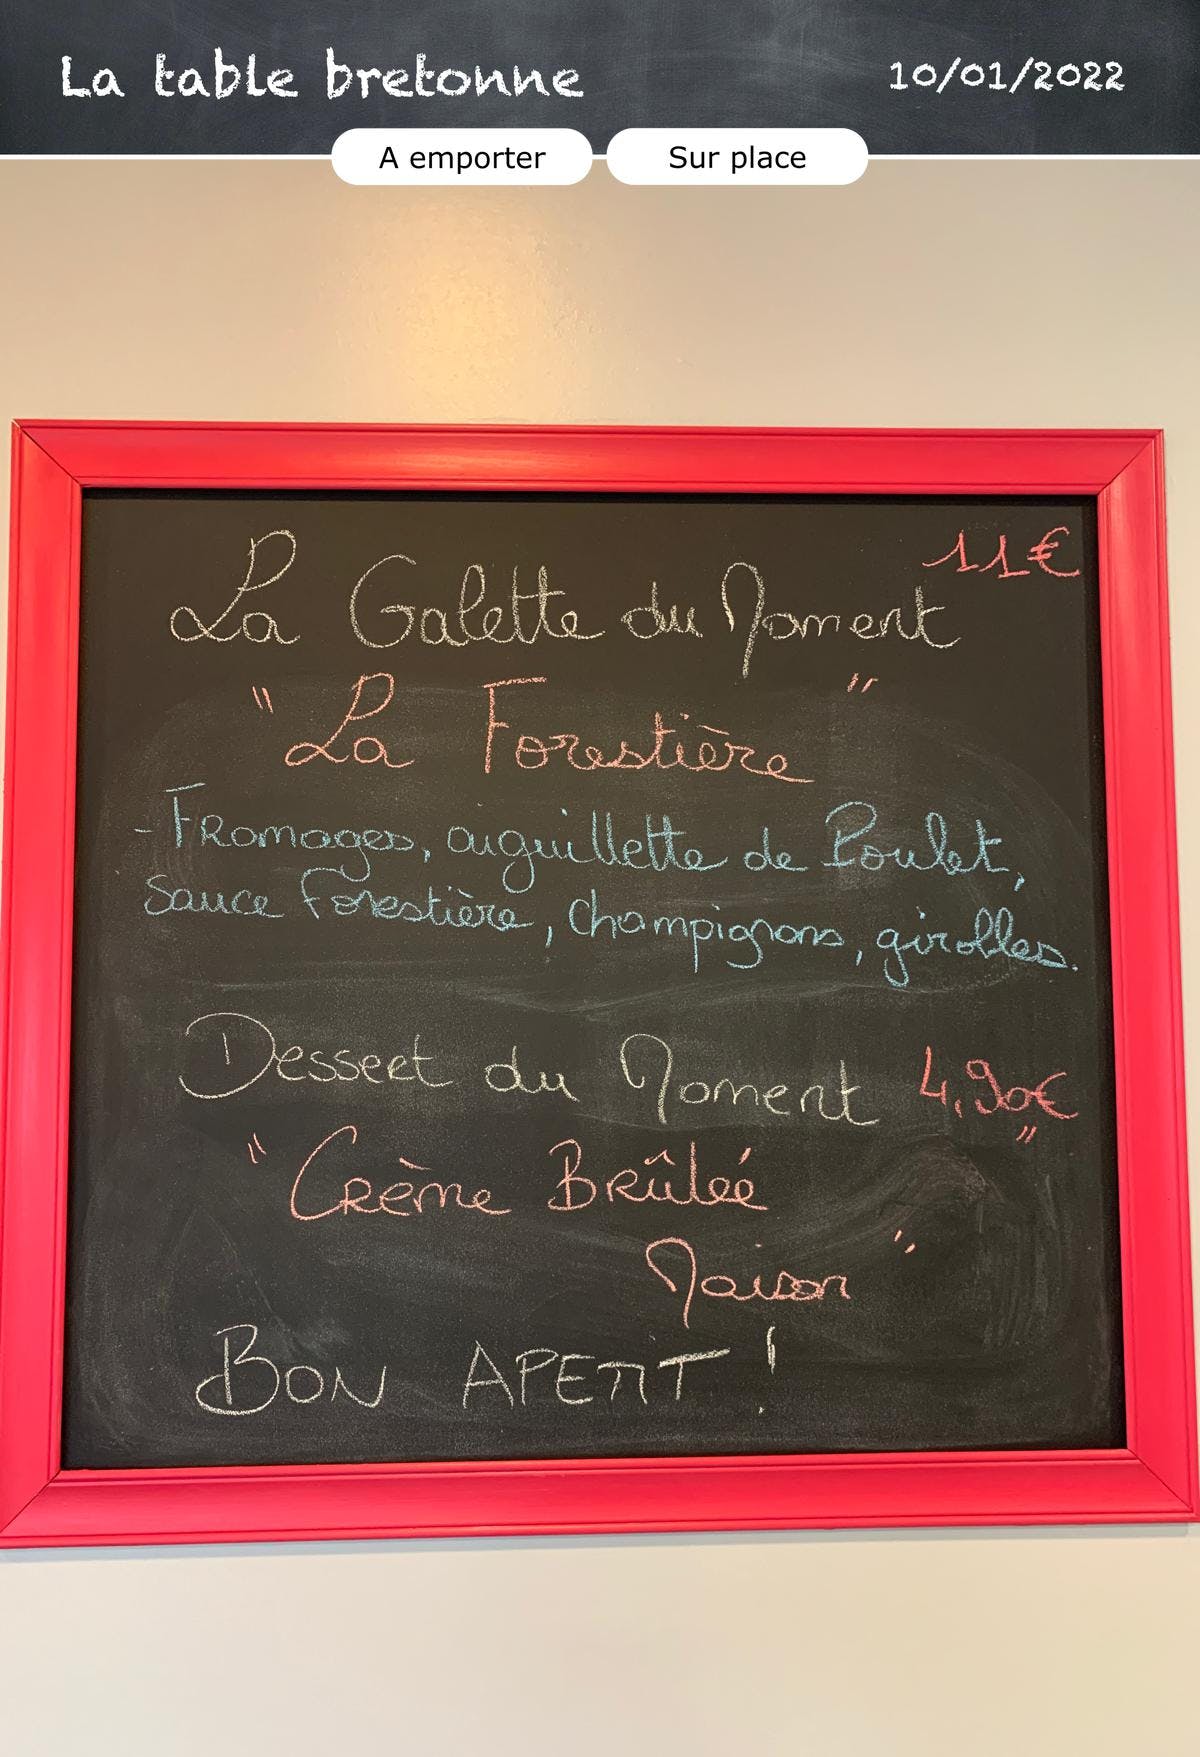 La table bretonne 10/01/2022
A emporter Sur place
11€
La Galette du Moment
"La Forestière"
- Fromages, aiguillette de Poulet,
sauce Forestière, champignons, girolles.
Dessert du Moment 4,90€
"Crème Brûlée"
Maison"
BON APETIT !